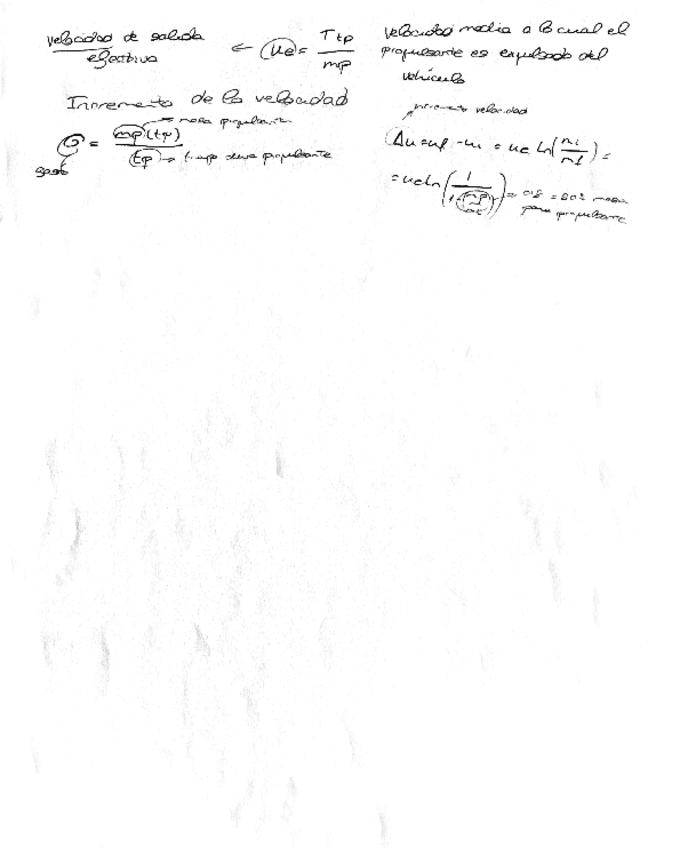 velocidad de salida
efectiva ← ue = T tp / mp
velocidad media a la cual el
propulsante es expulsado del
vehículo
Incremento de la velocidad
G = mp (tp) / tp
→ masa propulsante
→ tiempo dura propulsante
gasto
incremento velocidad
Δu = uf - ui = ue ln(mi/mf) =
= ue ln(1/(1-mp/)) = 0,8 = 80% masa
para propulsante